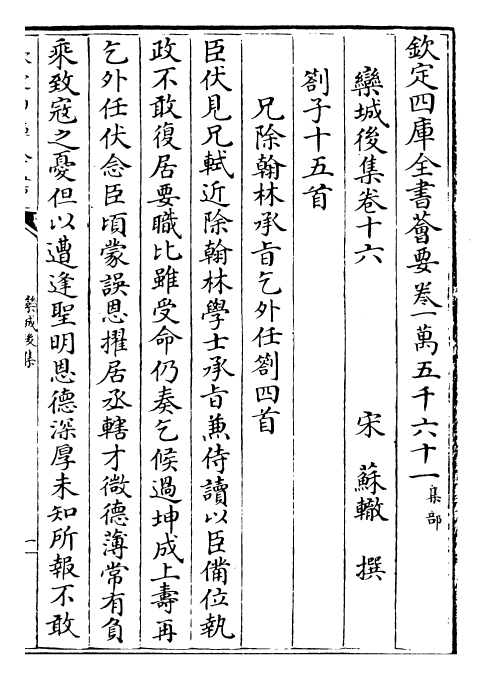 欽定四庫全書薈要卷一萬五千六十一集部
欒城後集卷十六
宋 蘇轍 撰
劄子十五首
兄除翰林承㫖乞外任劄四首
臣伏見兄軾近除翰林學士承㫖兼侍讀以臣備位執
政不敢復居要職比雖受命仍奏乞候過坤成上夀再
乞外任伏念臣頃蒙誤恩擢居丞轄才微德薄常有負
乘致寇之憂但以遭逢聖明恩徳深厚未知所報不敢
欒城後集
一